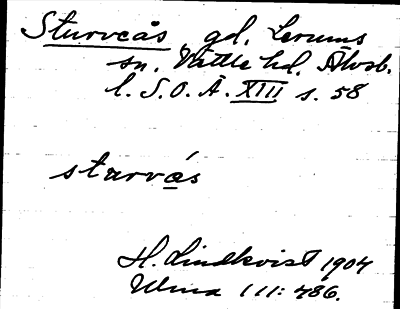 Sturveås gd. Lerums
sn. Vättle hd. Älvsb.
l. S.O.Ä. XIII s. 58
starvås
H. Lindkvist 1904
Ulma 111: 486.